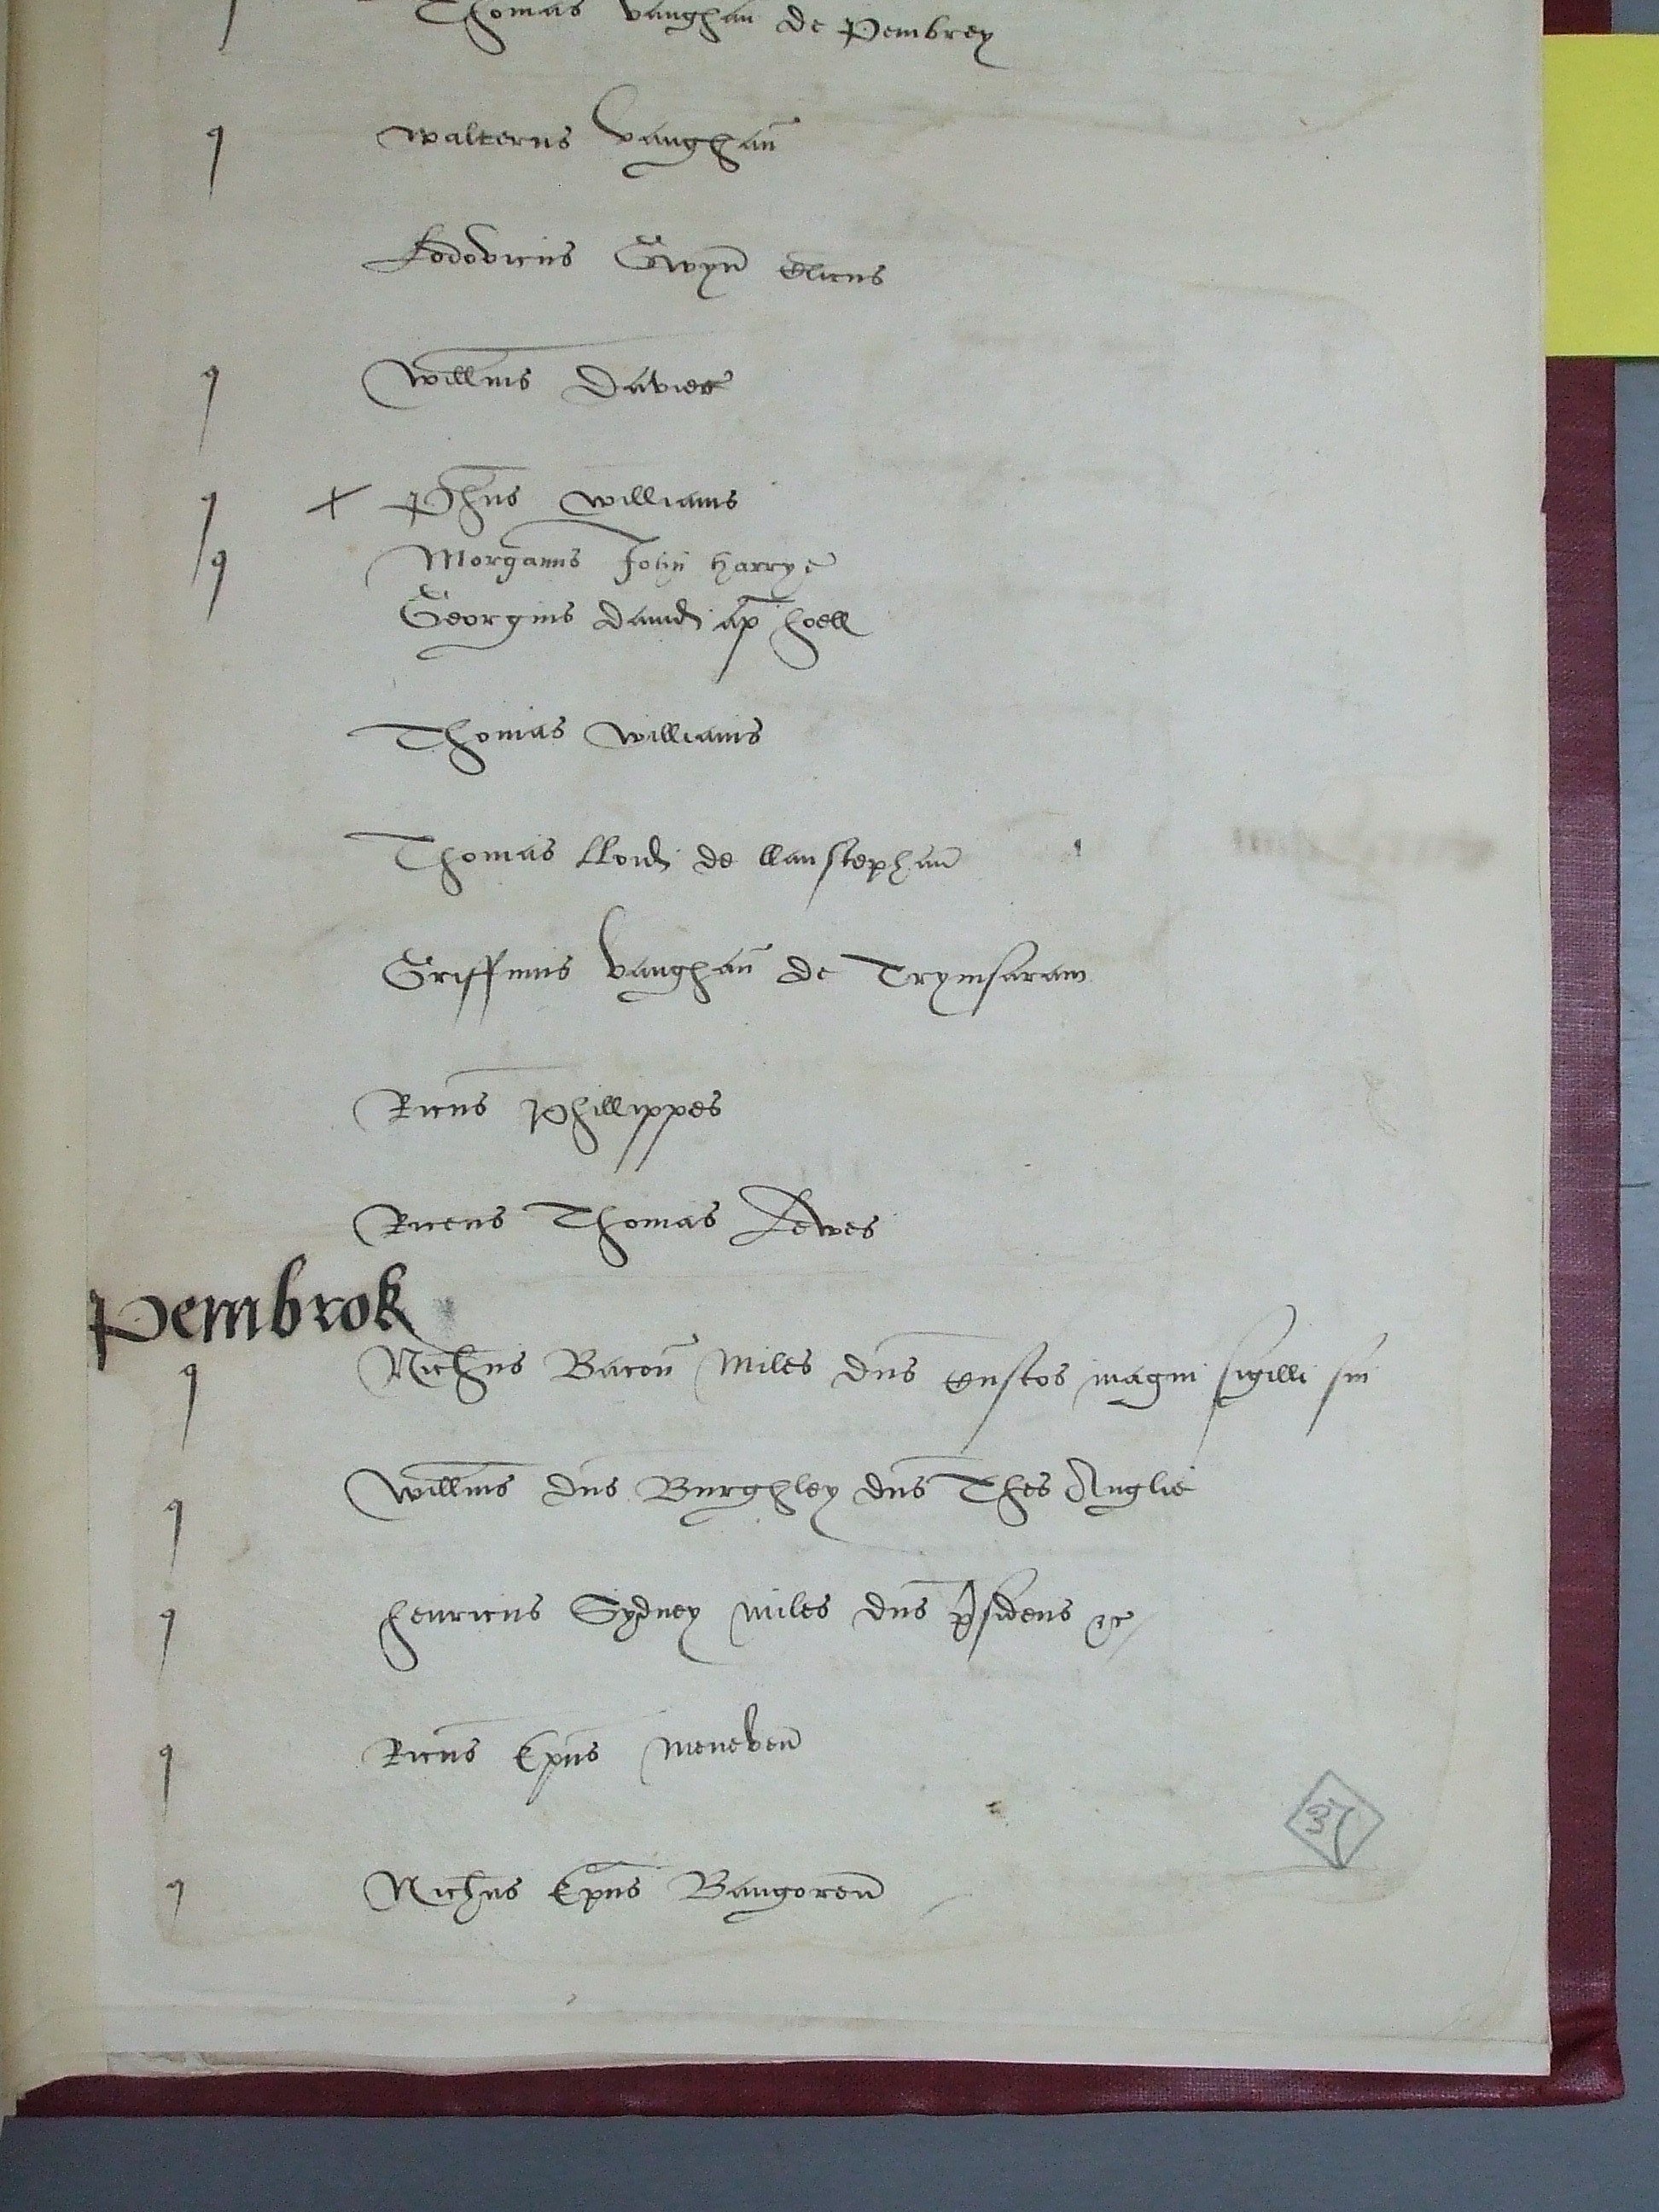 Thomas vaughan de Pembrey
q walterus vaughan
Lodovicus Gwyn clicus
q willms Davies
q x Phus williams
q Morganus John harrye
Georgius david ap hoell
Thomas williams
Thomas lloid de llanstephan
Griffinus vaughan de Trymsaram
Ricus Phillippes
Riceus Thomas Lewes
Pembrok
q Nichus Bacon Miles dns custos magni sigilli sui
q willms dns Burghley dns Thes Anglie
q henricus Sydney miles dns psidens &c
q Ricus Epus meneven
q Nichus Epus Bangoren
37